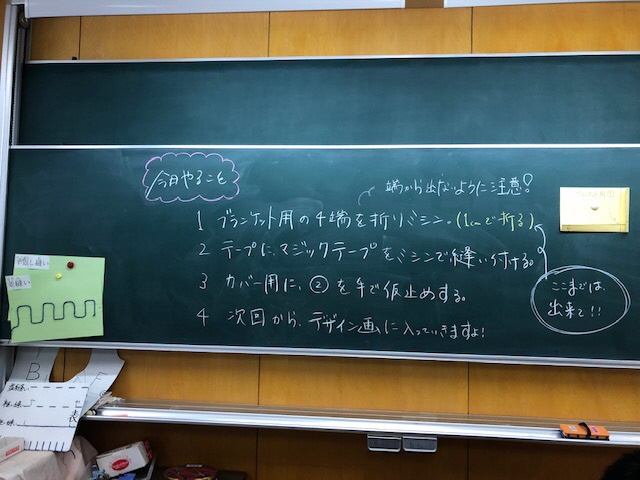 今日やること
端から出ないように注意!
1 ブランケット用の4端を折りミシン。(1cmで折る)
2 テープに、マジックテープをミシンで縫い付ける。
3 カバー用に、②を手で仮止めする。
4 次回から、デザイン画に入っていきますよ!
ここまでは、
出来て!!
B